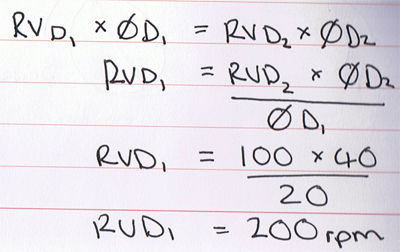 RVD₁ × ØD₁ = RVD₂ × ØD₂
RVD₁ = RVD₂ × ØD₂
ØD₁
RVD₁ = 100 × 40
20
RVD₁ = 200rpm